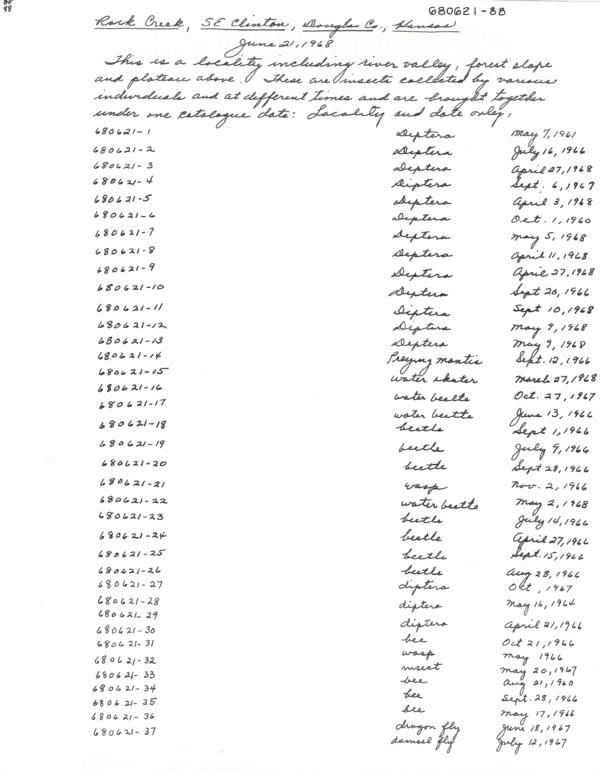 680621-88
Rock Creek, SE Clinton, Douglas Co., Kansas
June 21, 1968
This is a locality including river valley, forest slope
and plateau above. These are insects collected by various
individuals and at different times and are brought together
under one catalogue date: Locality and date only.
680621-1 Diptera May 7, 1961
680621-2 Diptera July 16, 1966
680621-3 Diptera April 27, 1968
680621-4 Diptera Sept. 6, 1967
680621-5 Diptera April 3, 1968
680621-6 Diptera Oct. 1, 1960
680621-7 Diptera May 5, 1968
680621-8 Diptera April 11, 1968
680621-9 Diptera April 27, 1968
680621-10 Diptera Sept 20, 1966
680621-11 Diptera Sept 10, 1968
680621-12 Diptera May 9, 1968
680621-13 Diptera May 9, 1968
680621-14 Preying mantis Sept. 12, 1966
680621-15 water skater March 27, 1968
680621-16 water beetle Oct. 27, 1967
680621-17 water beetle June 13, 1966
680621-18 beetle Sept 1, 1966
680621-19 beetle July 9, 1966
680621-20 beetle Sept 28, 1966
680621-21 wasp Nov. 2, 1966
680621-22 water beetle May 2, 1968
680621-23 beetle July 14, 1966
680621-24 beetle April 27, 1966
680621-25 beetle Sept. 15, 1966
680621-26 beetle Aug 28, 1966
680621-27 diptera Oct, 1967
680621-28 diptera May 16, 1964
680621-29 diptera April 21, 1966
680621-30 bee Oct 21, 1966
680621-31 wasp May 1966
680621-32 insect May 20, 1967
680621-33 bee Aug 21, 1960
680621-34 bee Sept. 28, 1966
680621-35 bee May 17, 1966
680621-36 dragon fly June 18, 1967
680621-37 damsel fly July 12, 1967